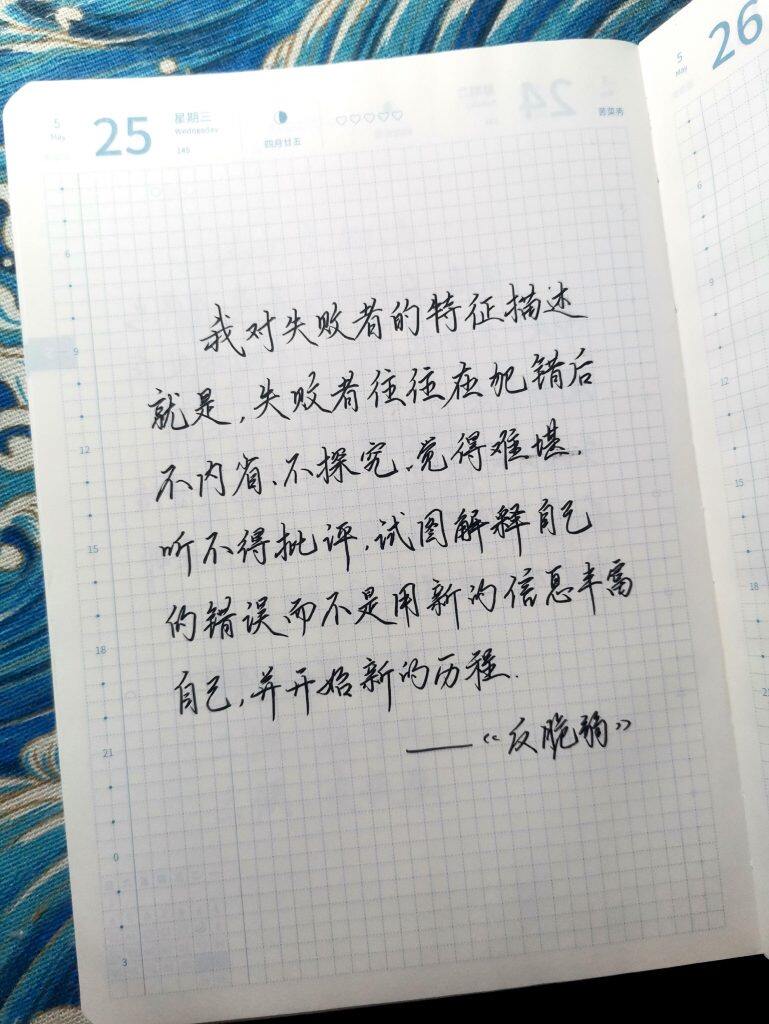 5
May
25
星期三
Wednesday
145
四月廿五
苦菜秀
5
May
26
6
9
12
15
18
21
0
3
我对失败者的特征描述
就是，失败者往往在犯错后
不内省、不探究、觉得难堪.
听不得批评，试图解释自己
的错误而不是用新的信息丰富
自己，并开始新的历程.
——“反脆弱”
6
9
12
15
18